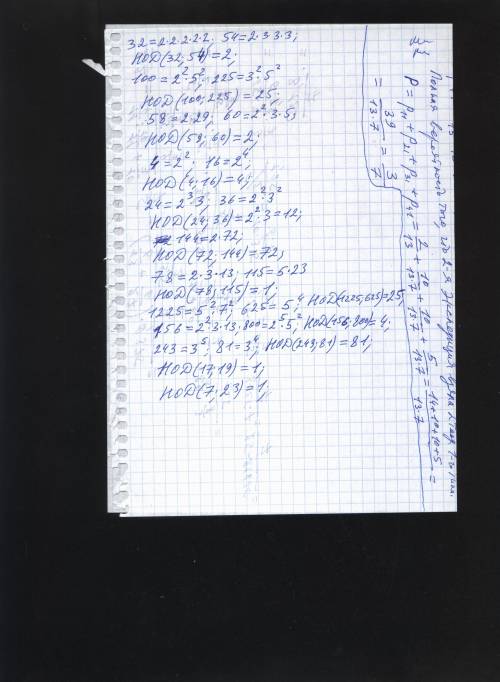 32=2·2·2·2·2; 54=2·3·3·3;
НОД(32;54)=2;
100=2²·5²; 225=3²·5²
НОД(100;225)=25;
58=2·29; 60=2²·3·5;
НОД(58;60)=2;
4=2²; 16=2⁴;
НОД(4;16)=4;
24=2³·3; 36=2²·3²
НОД(24;36)=2²·3=12;
144=2·72;
НОД(72;144)=72;
78=2·3·13; 115=5·23
НОД(78;115)=1;
1225=5²·7²; 625=5⁴; НОД(1225;625)=25;
156=2²·3·13; 800=2⁵·5²; НОД(156;800)=4;
243=3⁵; 81=3⁴; НОД(243;81)=81;
НОД(17;19)=1;
НОД(7;23)=1;
Полная вероятность того, что 2-я
P=p₁₁+p₂₁+p₃₁+p₄₁=2/13+10/13·7+10/13·7+5/13·7=14+10+10+5/13·7=
=39/13·7=3/7